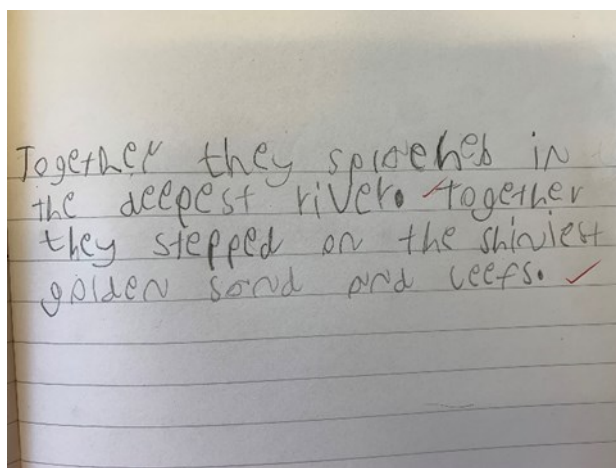 Together they sploehed in
the deepest river. together
they stepped on the shiniest
golden sand and leefs.